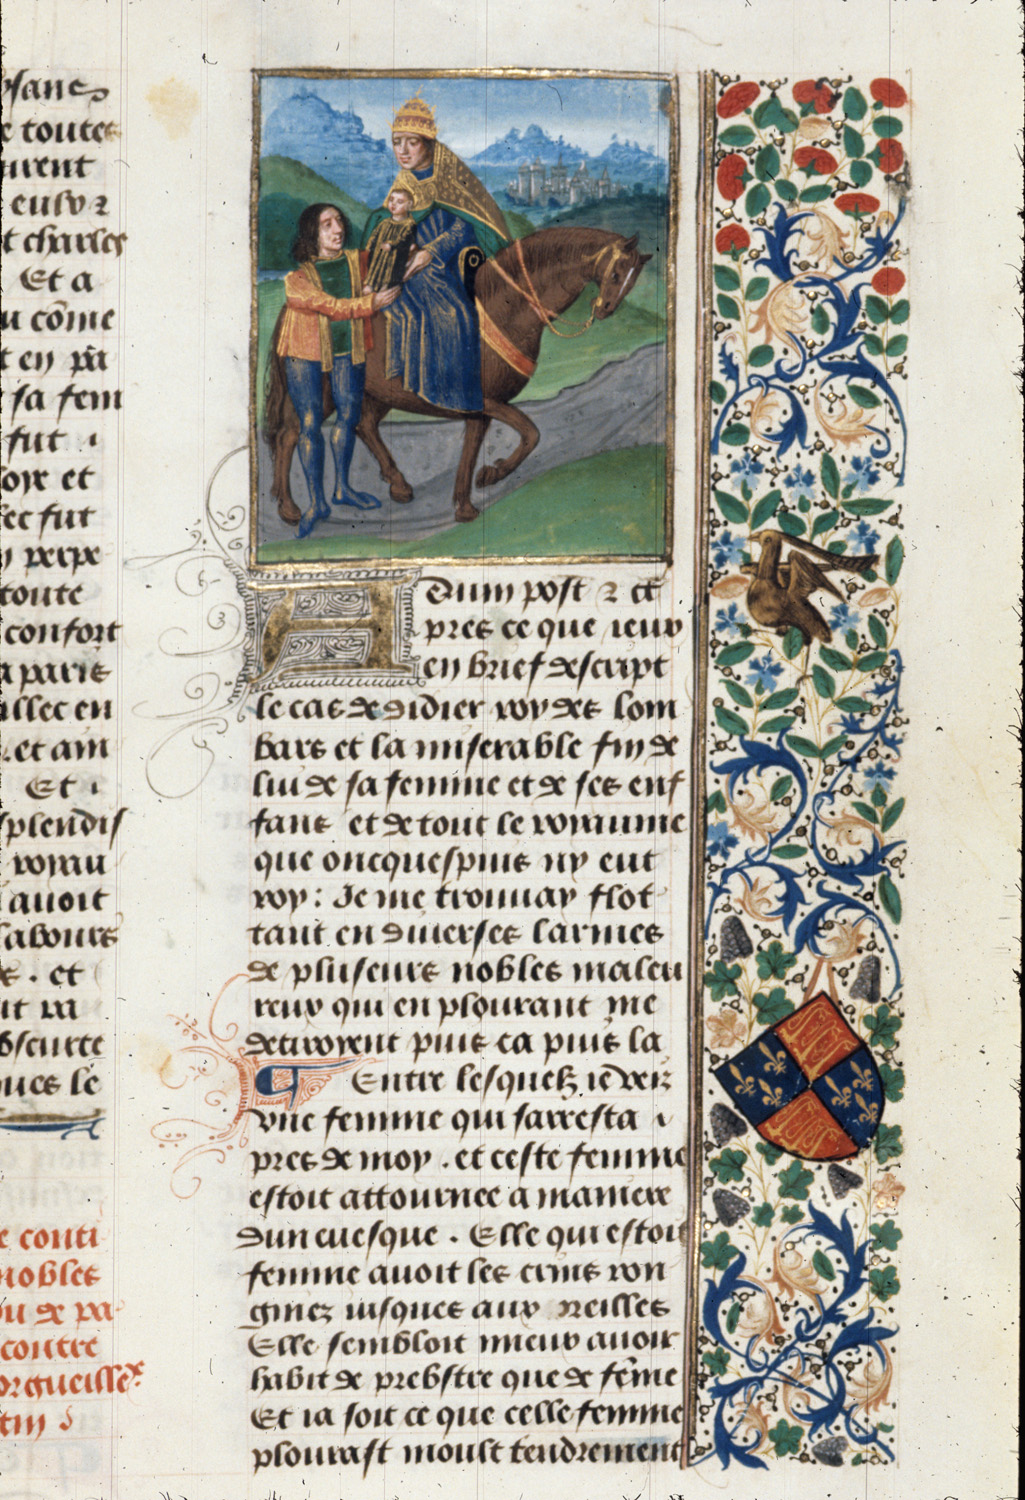 sans
e toutes
uirent
t charles
Et a
u cõme
sa fem
fut
oix et
fut
perpe
toute
confort
a paris
allec en
et am
Et
splendis
roiau
auoit
labours
. et
obscurte
ques le
conti
nobles
ou de pa
contre
orgueilleˣ
Adum post 2 ct
pres ce que ieuz
en brief descript
le cas de didier roy des lom
bars et la miserable fin de
lui de sa femme et de ses enf
fans et de tout le royaume
que oncquespuis ny eut
roy: Je me trouuay flot
tant en diuerses larmes
de pluseurs nobles maleu
reux qui en plourant me
detiroyent puis ca puis la
Entre lesquelz ie veiz
vne femme qui sarresta i
pres de moy . et ceste femme
estoit attournee a maniere
dun euesque . Elle qui estoit
femme auoit les crins ron
gniez iusques aux oreilles
Elle sembloit mieux auoir
habit de prebstre que de fẽme
Et ia soit ce que celle femme
plourast moult tendrement